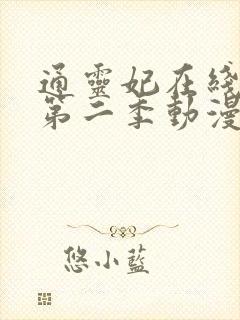 通靈妃在綫
第二季動漫
悠小藍